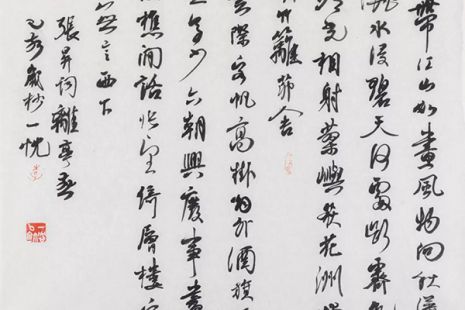 帶江山如畫風物向秋瀟
灑水浸碧天何處斷霽色
冷光相射蓼嶼荻花洲
竹籬茅舍
雲際客帆高掛煙外酒旗
多少六朝興廢事盡
樵閒話悵望倚層樓寒
無言西下
張昇詞離亭燕
己亥歲杪一忱